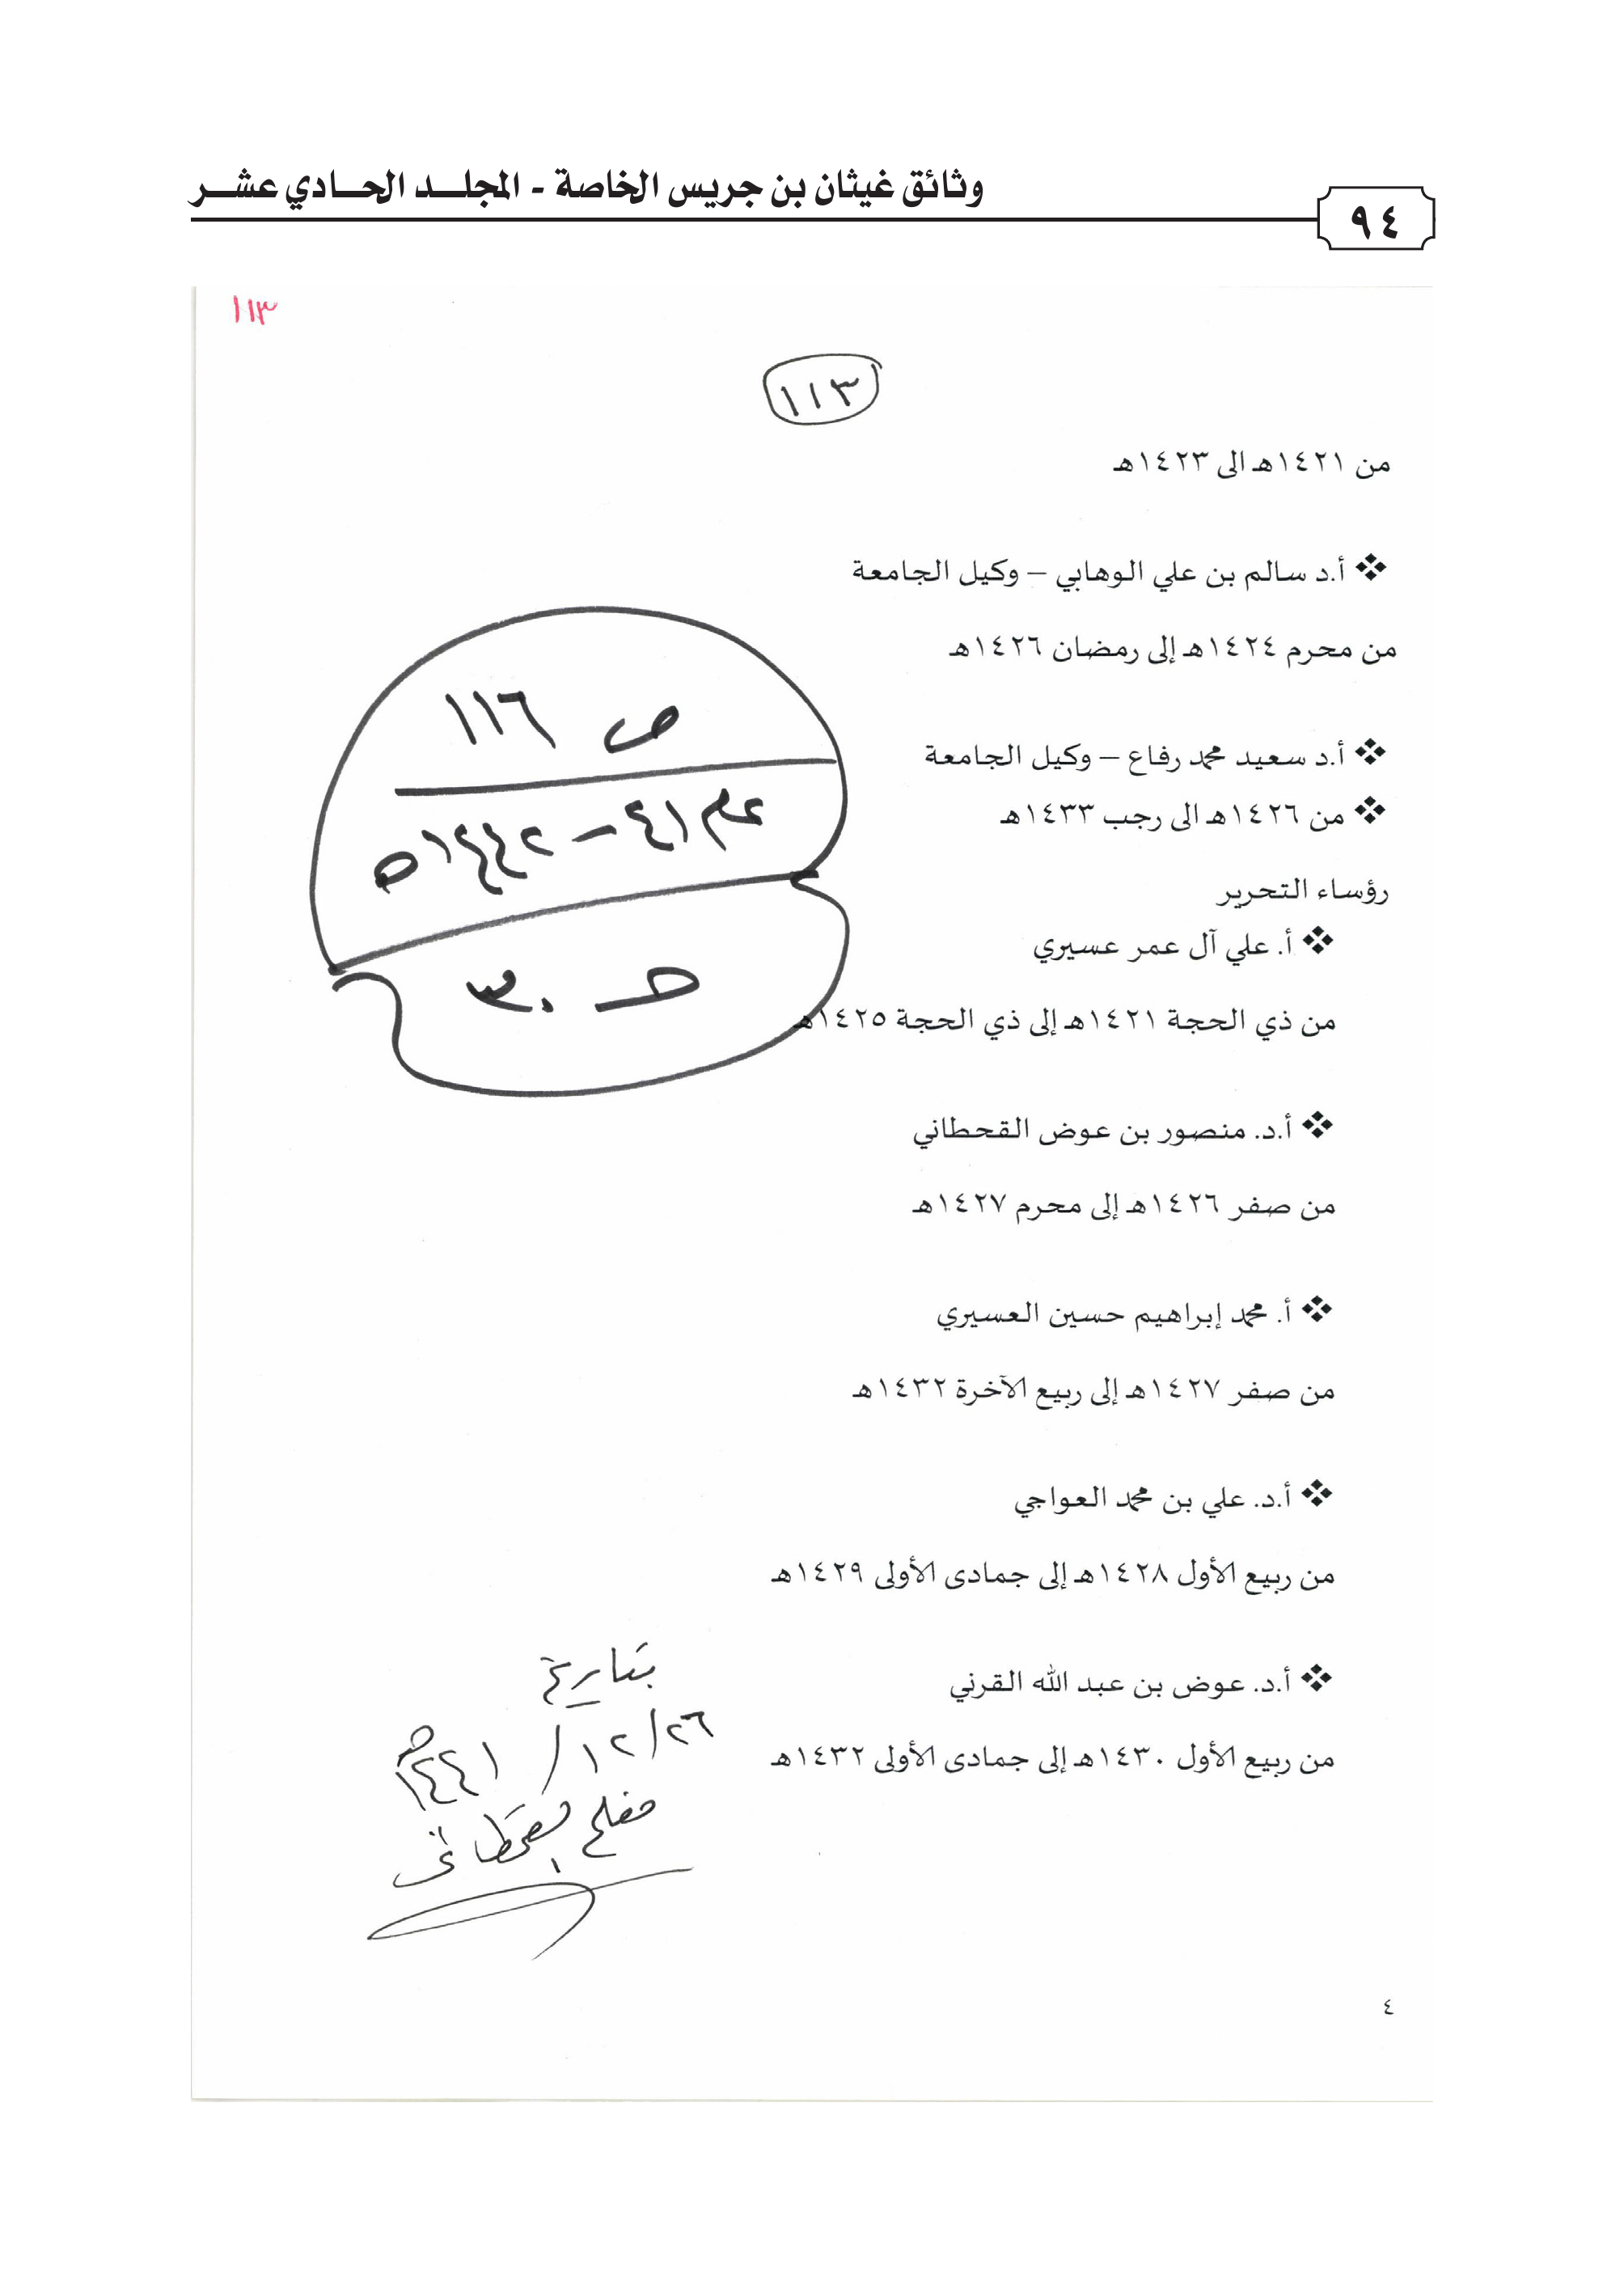 وثائق غيثان بن جريس الخاصة - المجلد الحادي عشر
٩٤
١١٣
١١٣
من ١٤٢١هـ الى ١٤٢٣هـ
❖ أ.د سالم بن علي الوهابي – وكيل الجامعة
من محرم ١٤٢٤هـ إلى رمضان ١٤٢٦هـ
ص ١١٦
❖ أ.د سعيد محمد رفاع – وكيل الجامعة
عام ٤١ – ١٤٤٢هـ
❖ من ١٤٢٦هـ الى رجب ١٤٣٣هـ
رؤساء التحرير
❖ أ. علي آل عمر عسيري
من ذي الحجة ١٤٢١هـ إلى ذي الحجة ١٤٢٥هـ
❖ أ.د. منصور بن عوض القحطاني
من صفر ١٤٢٦هـ إلى محرم ١٤٢٧هـ
❖ أ. محمد إبراهيم حسين العسيري
من صفر ١٤٢٧هـ إلى ربيع الآخرة ١٤٣٢هـ
❖ أ.د. علي بن محمد العواجي
من ربيع الأول ١٤٢٨هـ إلى جمادى الأولى ١٤٢٩هـ
❖ أ.د. عوض بن عبد الله القرني
من ربيع الأول ١٤٣٠هـ إلى جمادى الأولى ١٤٣٢هـ
بتاريخ
٢٦/١٢/١٤٤١هـ
مفلح القحطاني
٤